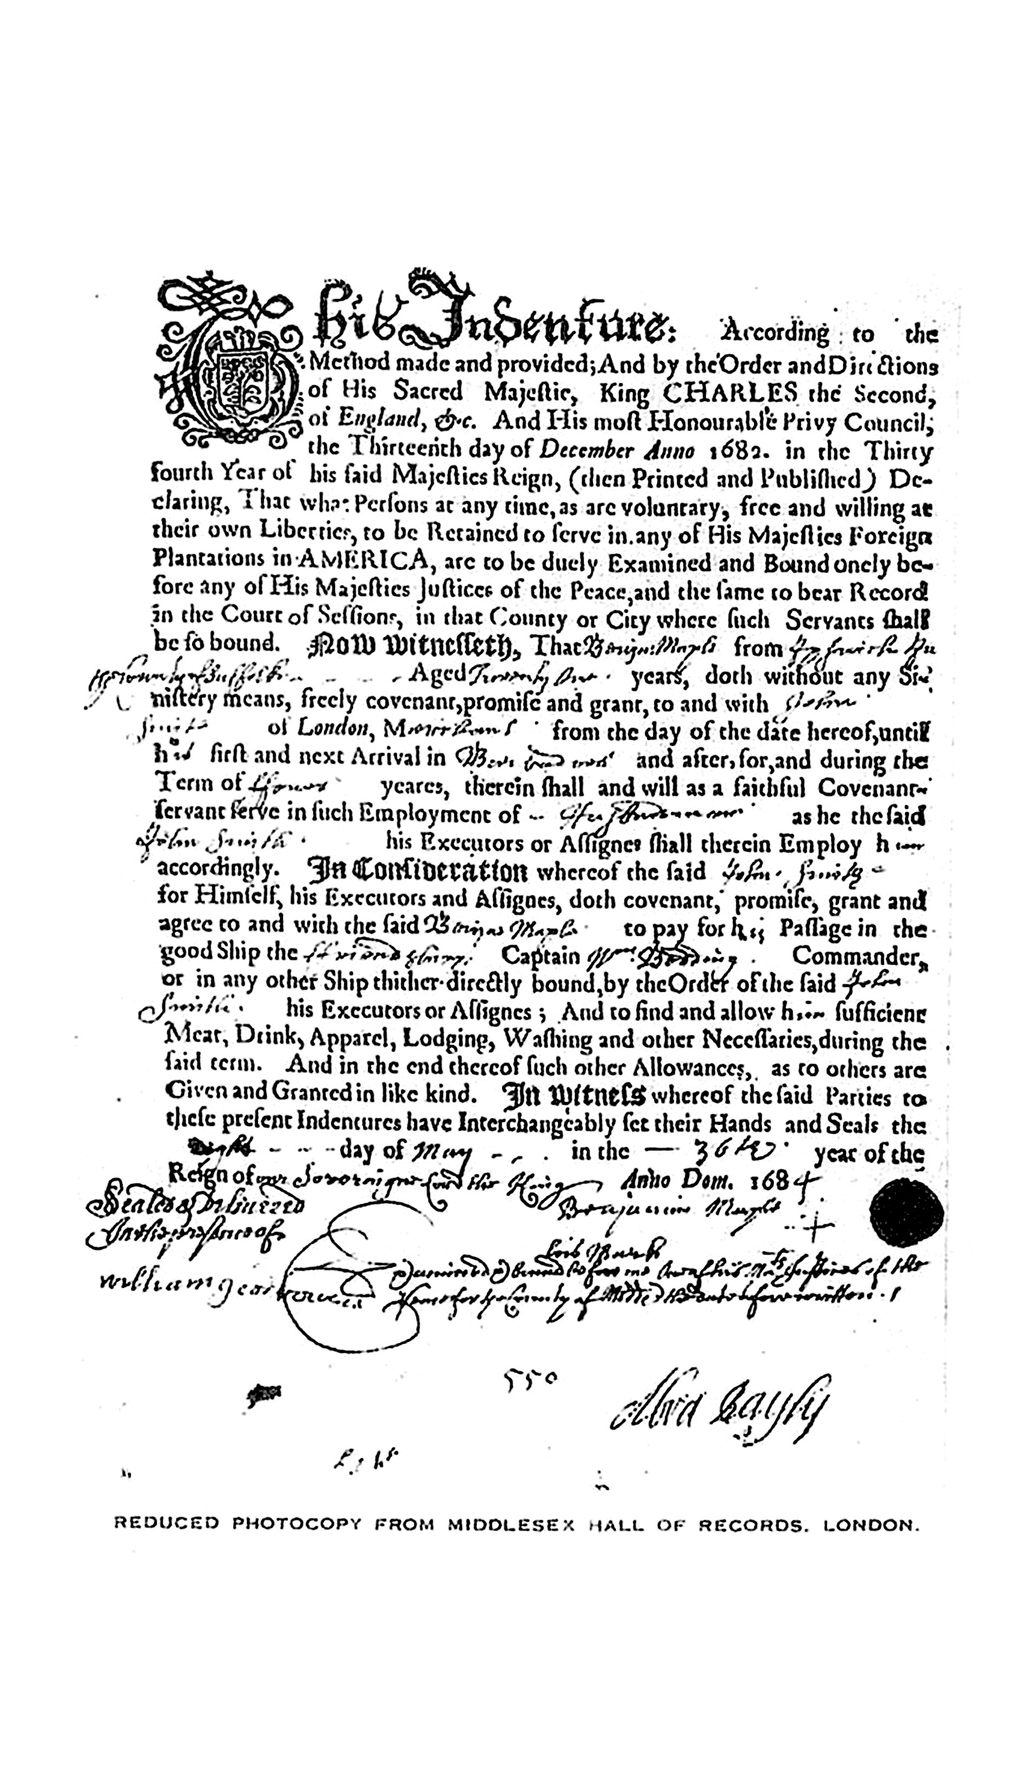 This Indenture: According to the
Method made and provided; And by the Order and Directions
of His Sacred Majestie, King CHARLES the Second,
of England, &c. And His most Honourable Privy Council,
the Thirteenth day of December Anno 1682. in the Thirty
fourth Year of his said Majesties Reign, (then Printed and Published) De-
claring, That what Persons at any time, as are voluntary, free and willing at
their own Liberties, to be Retained to serve in any of His Majesties Foreign
Plantations in AMERICA, are to be duely Examined and Bound onely be-
fore any of His Majesties Justices of the Peace, and the same to bear Record
in the Court of Sessions, in that County or City where such Servants shall
be so bound. Now Witnesseth, That Benja: Maple from in
County of Suffolk Aged Twenty One years, doth without any Si-
nistery means, freely covenant, promise and grant, to and with John
Smith of London, Merchant from the day of the date hereof, untill
his first and next Arrival in and after, for, and during the
Term of ffoure yeares, therein shall and will as a faithful Covenant-
servant serve in such Employment of as he the said
John Smith his Executors or Assignes shall therein Employ him
accordingly. In Consideration whereof the said John Smith
for Himself, his Executors and Assignes, doth covenant, promise, grant and
agree to and with the said Benja Maple to pay for his Passage in the
good Ship the Captain Wm. Commander,
or in any other Ship thither directly bound, by the Order of the said John
Smith his Executors or Assignes; And to find and allow him sufficient
Meat, Drink, Apparel, Lodging, Washing and other Necessaries, during the
said term. And in the end thereof such other Allowances, as to others are
Given and Granted in like kind. In Witness whereof the said Parties to
these present Indentures have Interchangeably set their Hands and Seals the
Eight day of May in the 36th year of the
Reign of our Soveraigne Lord the King Anno Dom. 1684
Sealed & Delivered Benjamin Maple
In the presence of his Mark
William before me one of his Maties Justices of the
Peace for the County of Midds the date above written
550
REDUCED PHOTOCOPY FROM MIDDLESEX HALL OF RECORDS. LONDON.